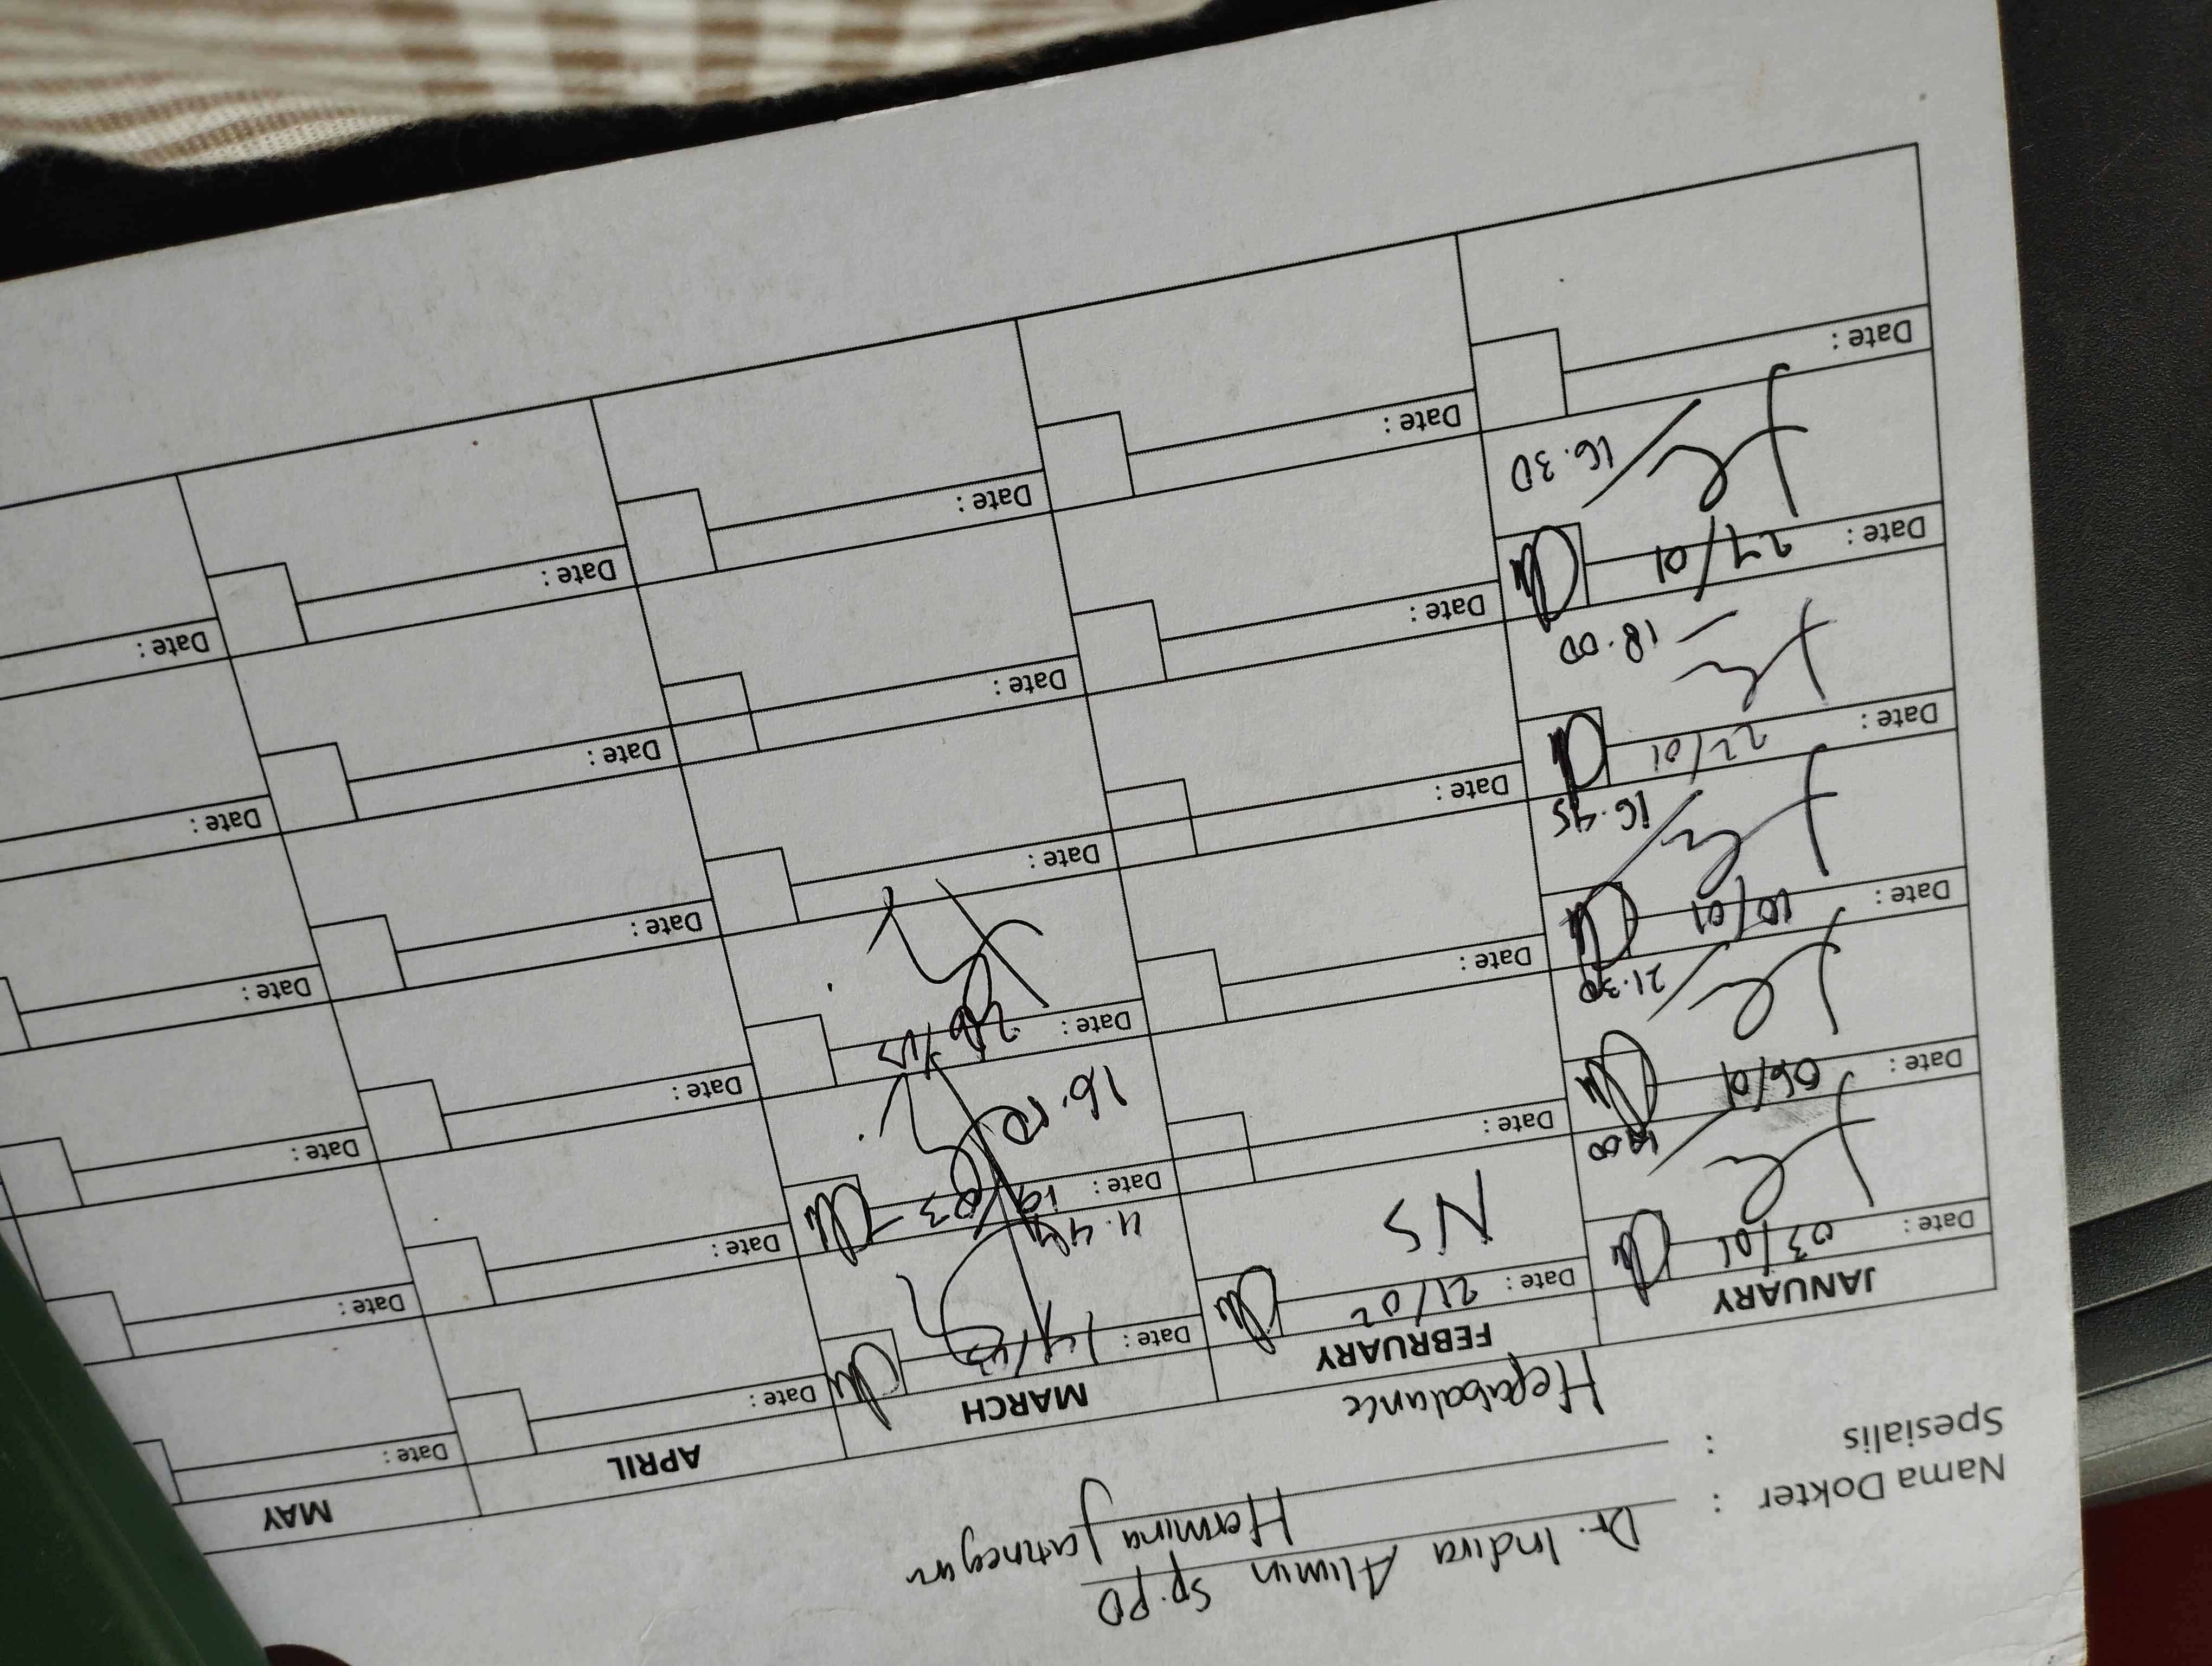 Nama Dokter : Dr. Indira Alimin Sp.PD
Spesialis : Hermina Jatinegara
Hepabalance
JANUARY FEBRUARY MARCH APRIL MAY
Date : 03/01
Date : 21/02
Date : 14/03
Date :
Date :
NS
Date : 06/01
Date :
Date : 19/03
Date :
Date :
21.30
16.00
Date : 10/01
Date :
Date :
Date :
Date :
16.45
Date : 22/01
Date :
Date :
Date :
Date :
18.00
Date : 27/01
Date :
Date :
Date :
Date :
16.30
Date :
Date :
Date :
Date :
Date :